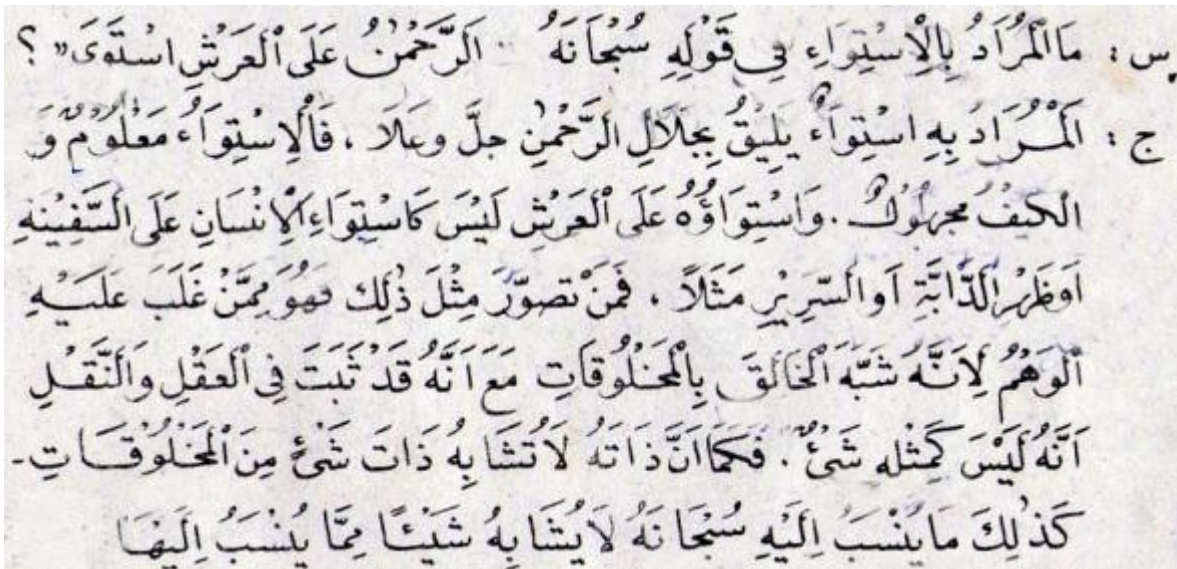 س : مَا الْمُرَادُ بِالْاِسْتِوَاءِ فِي قَوْلِهِ سُبْحَانَهُ " اَلرَّحْمٰنُ عَلَى الْعَرْشِ اسْتَوَى " ؟
ج : اَلْمُرَادُ بِهِ اسْتِوَاءٌ يَلِيْقُ بِجَلَالِ الرَّحْمٰنِ جلَّ وعَلَا ، فَالْاِسْتِوَاءُ مَعْلُوْمٌ وَ
الْكَيْفُ مَجْهُوْلٌ . وَاسْتِوَاؤُهُ عَلَى الْعَرْشِ لَيْسَ كَاسْتِوَاءِ الْاِنْسَانِ عَلَى السَّفِيْنَةِ
اَوظَهْرِ الدَّابَّةِ اَو السَّرِيْرِ مَثَلًا ، فَمَنْ تَصوَّرَ مِثْلَ ذٰلِكَ فَهُوَ مِمَّنْ غَلَبَ عَلَيْهِ
الْوَهْمُ لِاَنَّهُ شَبَّهَ الْخَالِقَ بِالْمَخْلُوقَاتِ مَعَ اَنَّهُ قَدْ ثَبَتَ فِي الْعَقْلِ وَالنَّقْلِ
اَنَّهُ لَيْسَ كَمِثْلِهِ شَيْءٌ . فَكَمَا اَنَّ ذَاتَهُ لَا تُشَابِهُ ذَاتَ شَيْءٍ مِنَ الْمَخْلُوْقَاتِ -
كَذٰلِكَ مَا يُنْسَبُ اِلَيْهِ سُبْحَانَهُ لَا يُشَابِهُ شَيْئًا مِمَّا يُنْسَبُ اِلَيْهَا